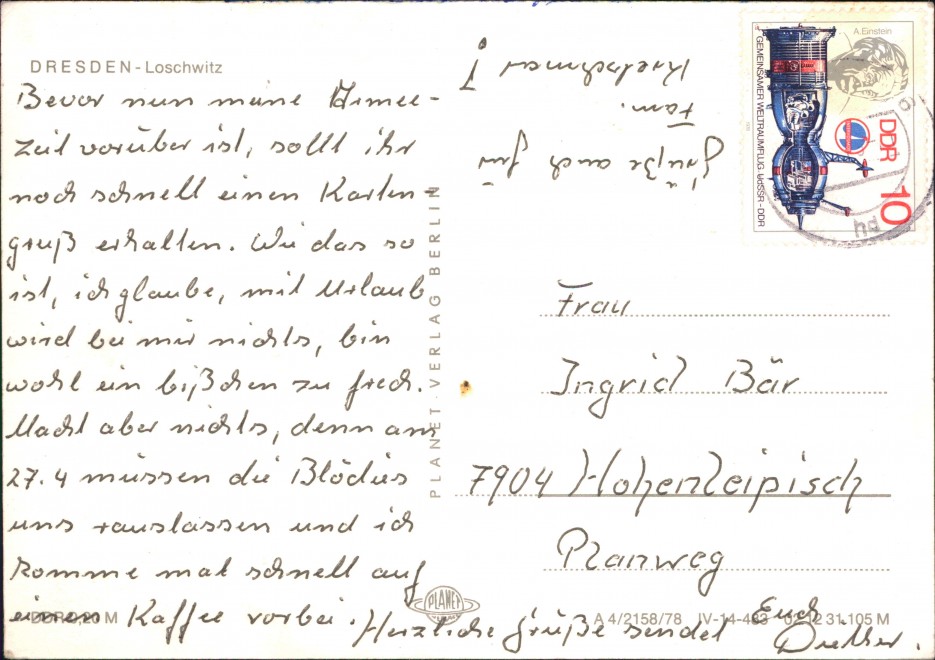 DRESDEN - Loschwitz
Bevor nun meine Armee-
zeit vorüber ist, sollt ihr
noch schnell einen Karten-
gruß erhalten. Wie das so
ist, ich glaube, mit Urlaub
wird bei mir nichts, bin
wohl ein bißchen zu frech.
Macht aber nichts, denn am
27.4 müssen die Blödies
uns rauslassen und ich
komme mal schnell auf
einen Kaffee vorbei. Herzliche Grüße sendet Euch
Diether.
Grüße auch für
Fam.
Kretschmar !
PLANET-VERLAG BERLIN
A.Einstein
GEMEINSAMER WELTRAUMFLUG UdSSR-DDR
DDR
10
Frau
Ingrid Bär
7904 Hohenleipisch
Planweg
PLANET
A 4/2158/78 IV-14-483 02 12 31.105 M